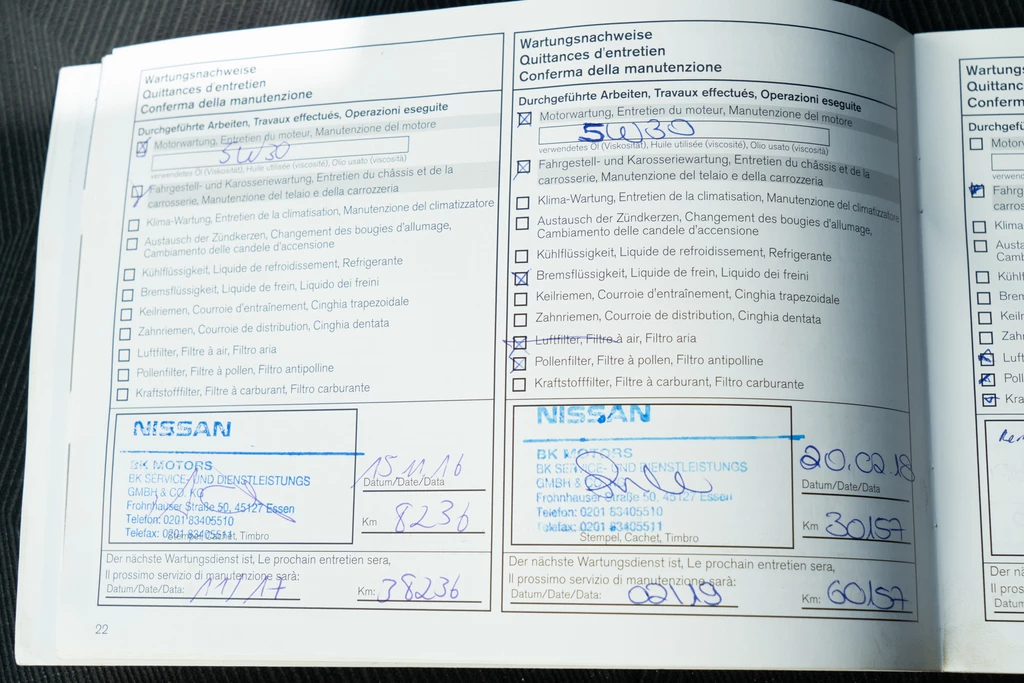 Wartungsnachweise
Quittances d'entretien
Conferma della manutenzione
Durchgeführte Arbeiten, Travaux effectués, Operazioni eseguite
Motorwartung, Entretien du moteur, Manutenzione del motore
5W30
verwendetes Öl (Viskosität), Huile utilisée (viscosité), Olio usato (viscosità)
Fahrgestell- und Karosseriewartung, Entretien du châssis et de la
carrosserie, Manutenzione del telaio e della carrozzeria
Klima-Wartung, Entretien de la climatisation, Manutenzione del climatizzatore
Austausch der Zündkerzen, Changement des bougies d'allumage,
Cambiamento delle candele d'accensione
Kühlflüssigkeit, Liquide de refroidissement, Refrigerante
Bremsflüssigkeit, Liquide de frein, Liquido dei freini
Keilriemen, Courroie d'entraînement, Cinghia trapezoidale
Zahnriemen, Courroie de distribution, Cinghia dentata
Luftfilter, Filtre à air, Filtro aria
Pollenfilter, Filtre à pollen, Filtro antipolline
Kraftstofffilter, Filtre à carburant, Filtro carburante
NISSAN
BK MOTORS
BK SERVICE- UND DIENSTLEISTUNGS
GMBH & CO. KG
Frohnhauser Straße 50, 45127 Essen
Telefon: 0201 83405510
Telefax: 0201 83405511
Stempel, Cachet, Timbro
15.11.16
Datum/Date/Data
Km 8236
Der nächste Wartungsdienst ist, Le prochain entretien sera,
Il prossimo servizio di manutenzione sarà:
Datum/Date/Data: 11/17 Km: 38236
22
Wartungsnachweise
Quittances d'entretien
Conferma della manutenzione
Durchgeführte Arbeiten, Travaux effectués, Operazioni eseguite
Motorwartung, Entretien du moteur, Manutenzione del motore
5W30
verwendetes Öl (Viskosität), Huile utilisée (viscosité), Olio usato (viscosità)
Fahrgestell- und Karosseriewartung, Entretien du châssis et de la
carrosserie, Manutenzione del telaio e della carrozzeria
Klima-Wartung, Entretien de la climatisation, Manutenzione del climatizzatore
Austausch der Zündkerzen, Changement des bougies d'allumage,
Cambiamento delle candele d'accensione
Kühlflüssigkeit, Liquide de refroidissement, Refrigerante
Bremsflüssigkeit, Liquide de frein, Liquido dei freini
Keilriemen, Courroie d'entraînement, Cinghia trapezoidale
Zahnriemen, Courroie de distribution, Cinghia dentata
Luftfilter, Filtre à air, Filtro aria
Pollenfilter, Filtre à pollen, Filtro antipolline
Kraftstofffilter, Filtre à carburant, Filtro carburante
NISSAN
BK MOTORS
BK SERVICE- UND DIENSTLEISTUNGS
GMBH & CO.
Frohnhauser Straße 50, 45127 Essen
Telefon: 0201 83405510
Telefax: 0201 83405511
Stempel, Cachet, Timbro
20.02.18
Datum/Date/Data
Km 30157
Der nächste Wartungsdienst ist, Le prochain entretien sera,
Il prossimo servizio di manutenzione sarà:
Datum/Date/Data: 02/19 Km: 60157